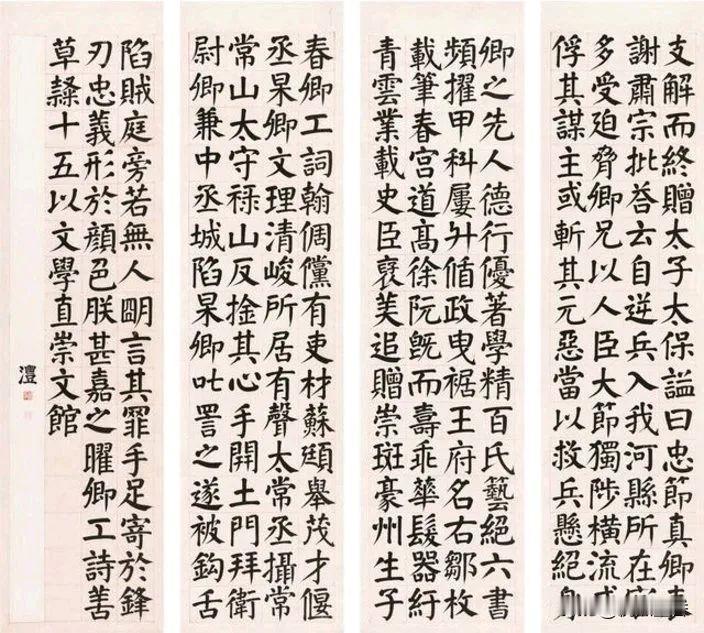 支解而終贈太子太保謚曰忠節真卿表
謝肅宗批荅云自逆兵入我河縣所在
多受迫脅卿兄以人臣大節獨陟橫流或
俘其謀主或斬其元惡當以救兵懸絕身
卿之先人德行優著學精百氏藝絕六書
頻擢甲科屢升循政曳裾王府名右鄒枚
載筆春宮道高徐阮既而壽乖華髮器紆
青雲業載史臣褒美追贈崇班豪州生子
春卿工詞翰倜儻有吏材蘇頲舉茂才偃
丞杲卿文理清峻所居有聲太常丞攝常
常山太守祿山反捦其心手開土門拜衛
尉卿兼中丞城陷杲卿叱詈之遂被鈎舌
陷賊庭旁若無人朙言其罪手足寄於鋒
刃忠義形於顏色朕甚嘉之曜卿工詩善
草隸十五以文學直崇文館
澧